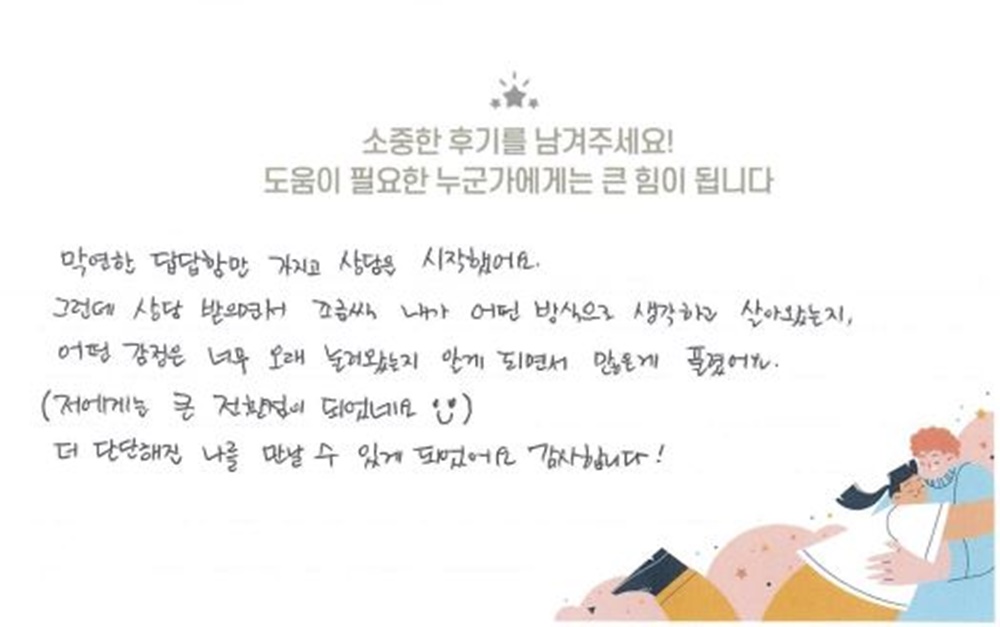 소중한 후기를 남겨주세요!
도움이 필요한 누군가에게는 큰 힘이 됩니다
막연한 답답함만 가지고 상담을 시작했어요.
그런데 상담 받으면서 조금씩 내가 어떤 방식으로 생각하고 살아왔는지,
어떤 감정은 너무 오래 눌려왔는지 알게 되면서 많은게 풀렸어요.
(저에게는 큰 전환점이 되었네요 :)
더 단단해진 나를 만날 수 있게 되었어요 감사합니다!